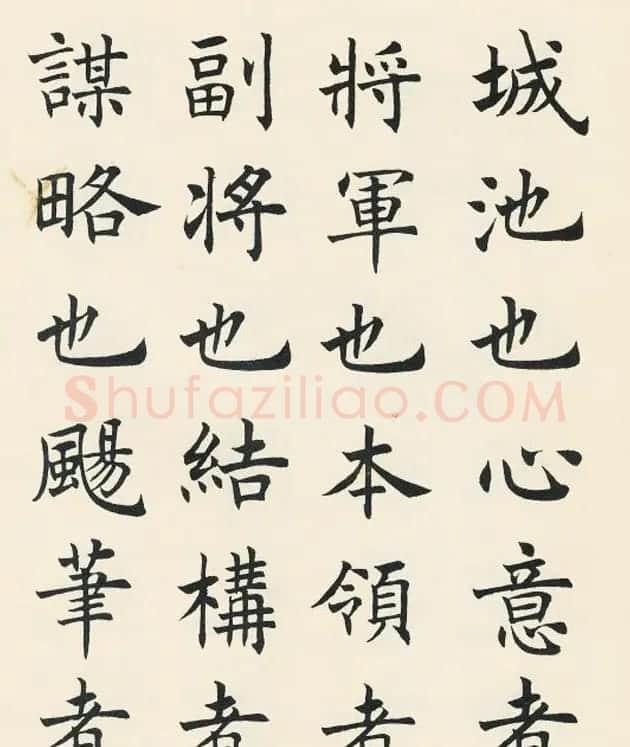 城池也心意者
將軍也本領者
副將也結構者
謀略也颺筆者
Shufaziliao.COM